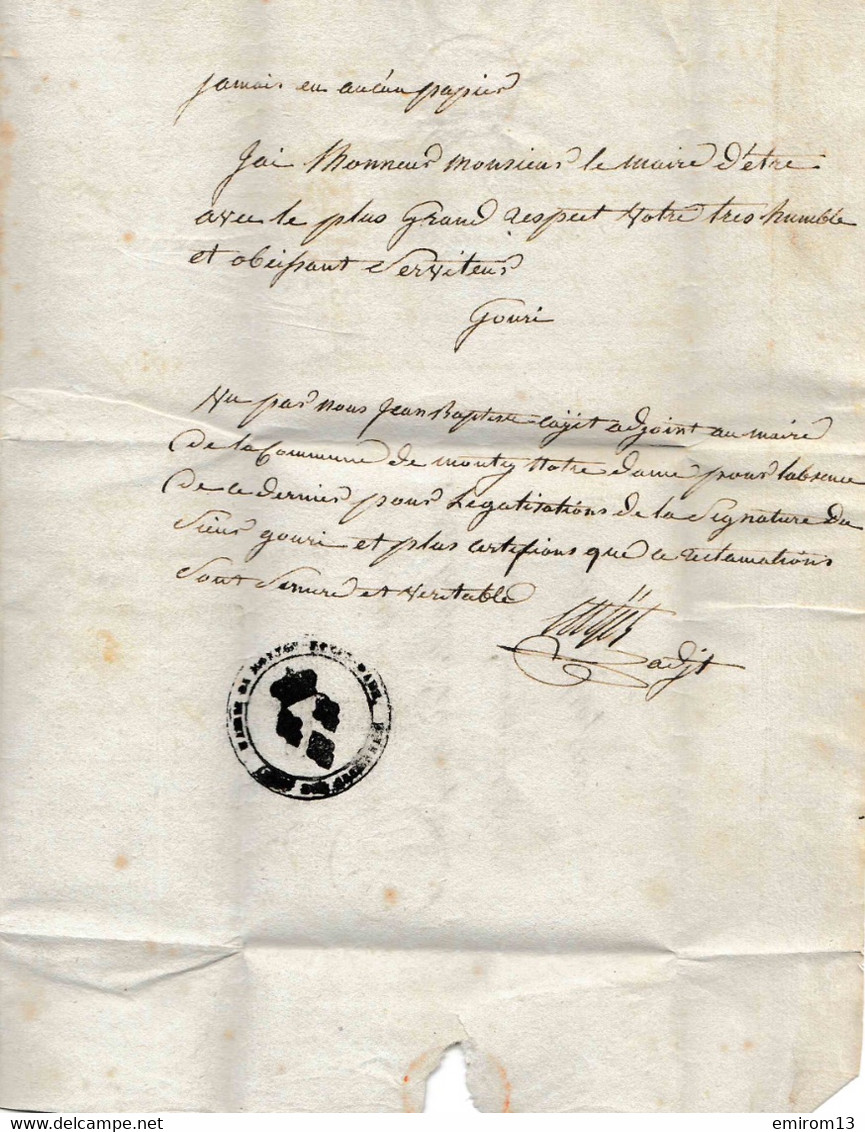 jamais eu aucun papier
Jai lhonneur monsieur le maire d'etre
avec le plus Grand respect votre tres humble
et obeissant Serviteur
Gouri
Vu par nous Jean Baptiste cajet adjoint au maire
de la Commune de monty Notre dame pour labsence
de ce dernier pour Legatisations de la Signature du
Sieur gouri et plus certifions que ce reclamations
Sont Sensure et veritable
adjt
delcampe.net
emirom13